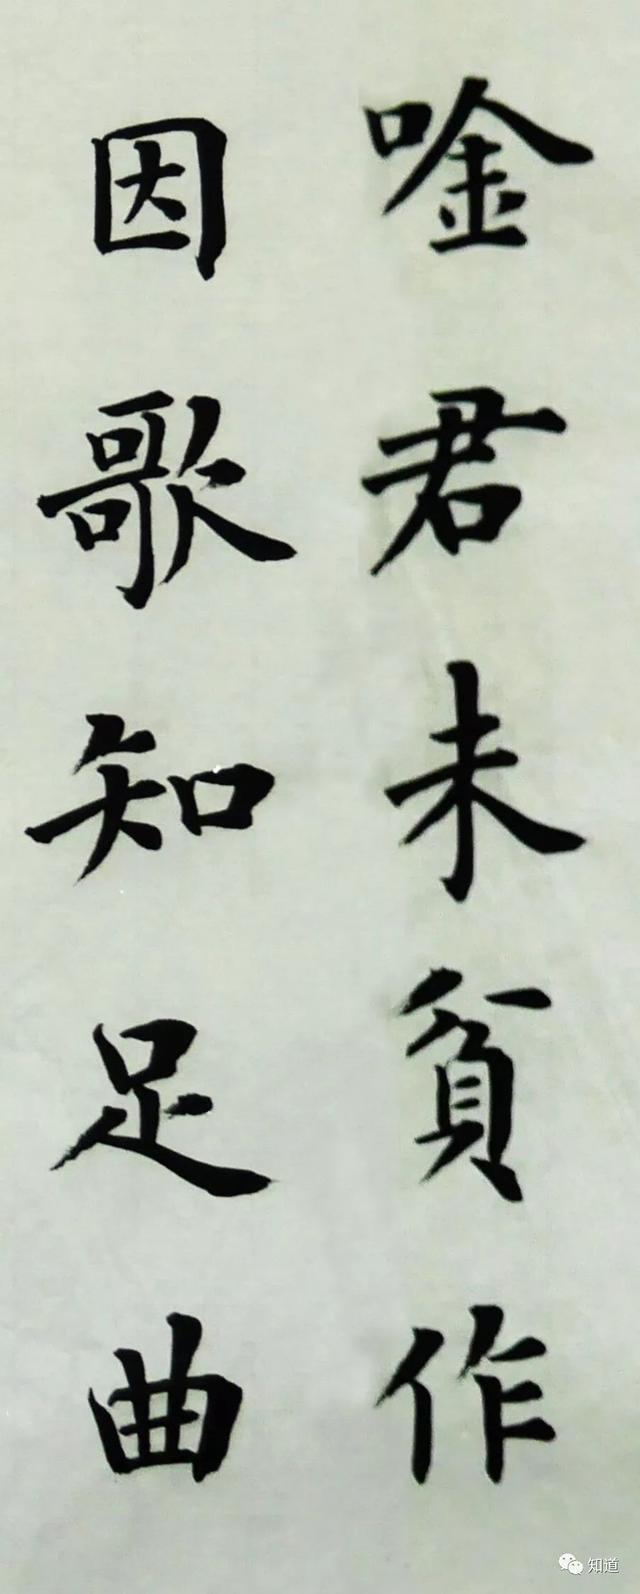 唫君未貧作
因歌知足曲
知道